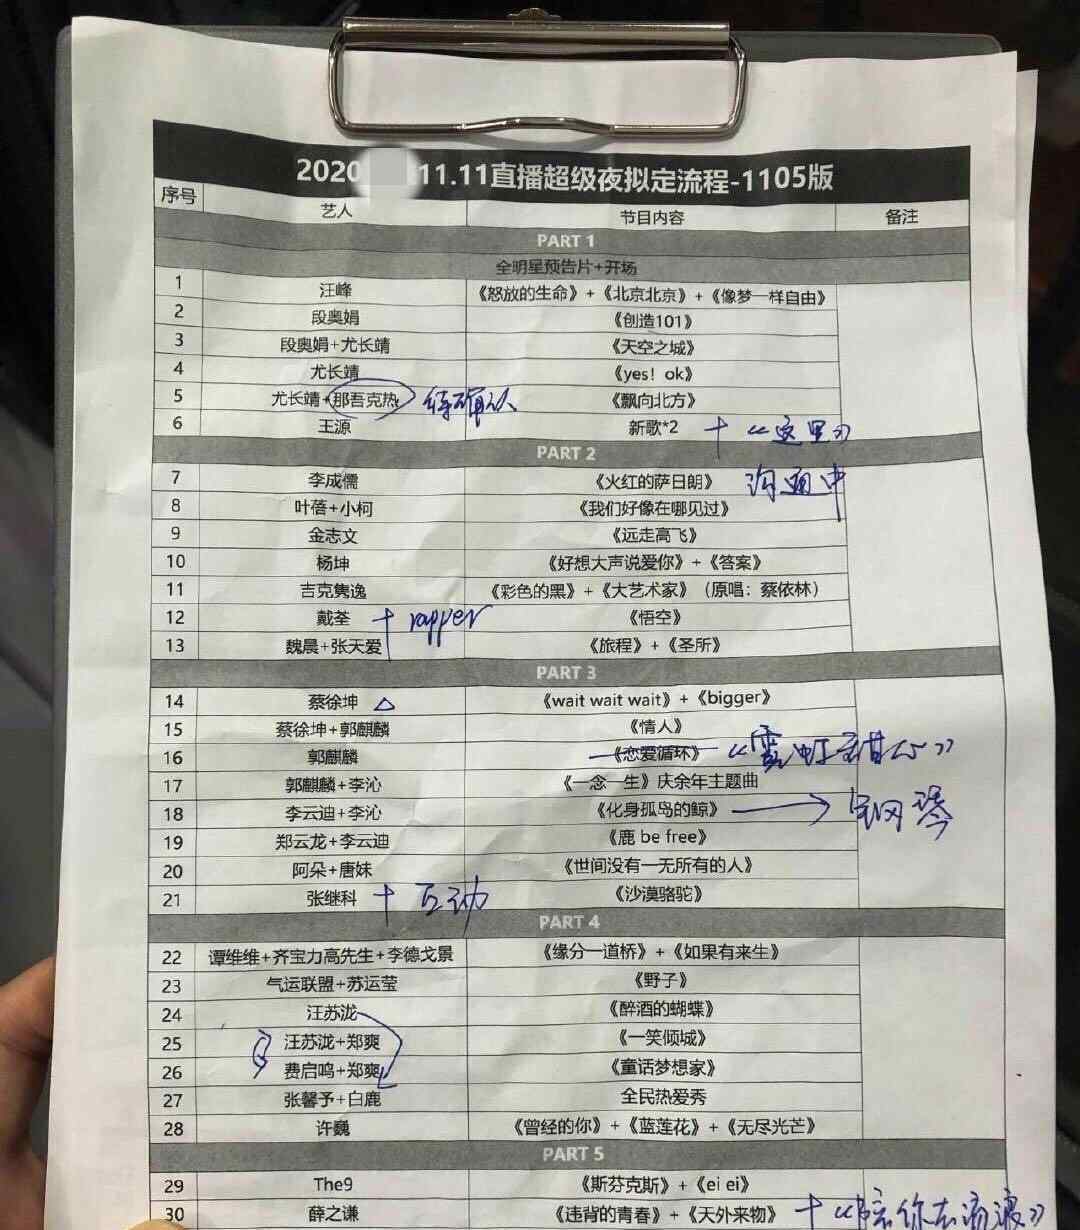 2020 11.11直播超级夜拟定流程-1105版
序号 艺人 节目内容 备注
PART 1
全明星预告片+开场
1 汪峰 《怒放的生命》+《北京北京》+《像梦一样自由》
2 段奥娟 《创造101》
3 段奥娟+尤长靖 《天空之城》
4 尤长靖 《yes！ok》
5 尤长靖+那吾克热 待确认 《飘向北方》
6 王源 新歌*2 + 《这里》
PART 2
7 李成儒 《火红的萨日朗》 沟通中
8 叶蓓+小柯 《我们好像在哪见过》
9 金志文 《远走高飞》
10 杨坤 《好想大声说爱你》+《答案》
11 吉克隽逸 《彩色的黑》+《大艺术家》（原唱：蔡依林）
12 戴荃 + rapper 《悟空》
13 魏晨+张天爱 《旅程》+《圣所》
PART 3
14 蔡徐坤 △ 《wait wait wait》+《bigger》
15 蔡徐坤+郭麒麟 《情人》
16 郭麒麟 《恋爱循环》 《霓虹甜心》
17 郭麒麟+李沁 《一念一生》庆余年主题曲
18 李云迪+李沁 《化身孤岛的鲸》 → 钢琴
19 郑云龙+李云迪 《鹿 be free》
20 阿朵+唐妹 《世间没有一无所有的人》
21 张继科 + 互动 《沙漠骆驼》
PART 4
22 谭维维+齐宝力高先生+李德戈景 《缘分一道桥》+《如果有来生》
23 气运联盟+苏运莹 《野子》
24 汪苏泷 《醉酒的蝴蝶》
25 汪苏泷+郑爽 《一笑倾城》
26 费启鸣+郑爽 《童话梦想家》
27 张馨予+白鹿 全民热爱秀
28 许巍 《曾经的你》+《蓝莲花》+《无尽光芒》
PART 5
29 The9 《斯芬克斯》+《ei ei》
30 薛之谦 《违背的青春》+《天外来物》 + 《陪你去流浪》